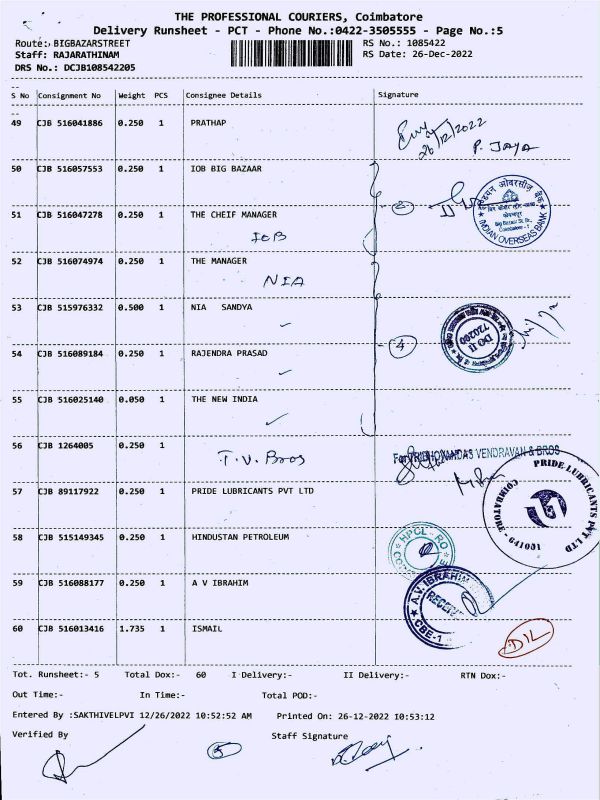 THE PROFESSIONAL COURIERS, Coimbatore
Delivery Runsheet - PCT - Phone No.:0422-3505555 - Page No.:5
Route: BIGBAZARSTREET RS No.: 1085422
Staff: RAJARATHINAM RS Date: 26-Dec-2022
DRS No.: DCJB108542205
S No Consignment No Weight PCS Consignee Details Signature
49 CJB 516041886 0.250 1 PRATHAP
26/12/2022
P. JAYA
50 CJB 516057553 0.250 1 IOB BIG BAZAAR
51 CJB 516047278 0.250 1 THE CHEIF MANAGER
IOB
INDIAN OVERSEAS BANK
52 CJB 516074974 0.250 1 THE MANAGER
NIA
53 CJB 515976332 0.500 1 NIA SANDYA
DO II
720200
54 CJB 516089184 0.250 1 RAJENDRA PRASAD
4
55 CJB 516025140 0.050 1 THE NEW INDIA
56 CJB 1264005 0.250 1
T.V. Bros
VENDRAVAN & BROS
57 CJB 89117922 0.250 1 PRIDE LUBRICANTS PVT LTD
PRIDE LUBRICANTS PVT LTD
COIMBATORE - 641001
58 CJB 515149345 0.250 1 HINDUSTAN PETROLEUM
HPCL - RO
59 CJB 516088177 0.250 1 A V IBRAHIM
A.V. IBRAHIM
RECEIVED
CBE-1
60 CJB 516013416 1.735 1 ISMAIL
DIL
Tot. Runsheet:- 5 Total Dox:- 60 I Delivery:- II Delivery:- RTN Dox:-
Out Time:- In Time:- Total POD:-
Entered By :SAKTHIVELPVI 12/26/2022 10:52:52 AM Printed On: 26-12-2022 10:53:12
Verified By Staff Signature
5